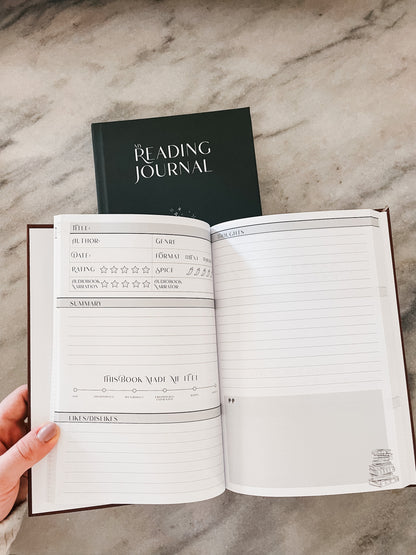 MY
READING
JOURNAL
TITLE:
AUTHOR: GENRE
DATE: FORMAT
RATING SPICE
AUDIOBOOK NARRATION AUDIOBOOK NARRATOR
SUMMARY
THIS BOOK MADE ME FEEL
LIKES/DISLIKES
THOUGHTS
"